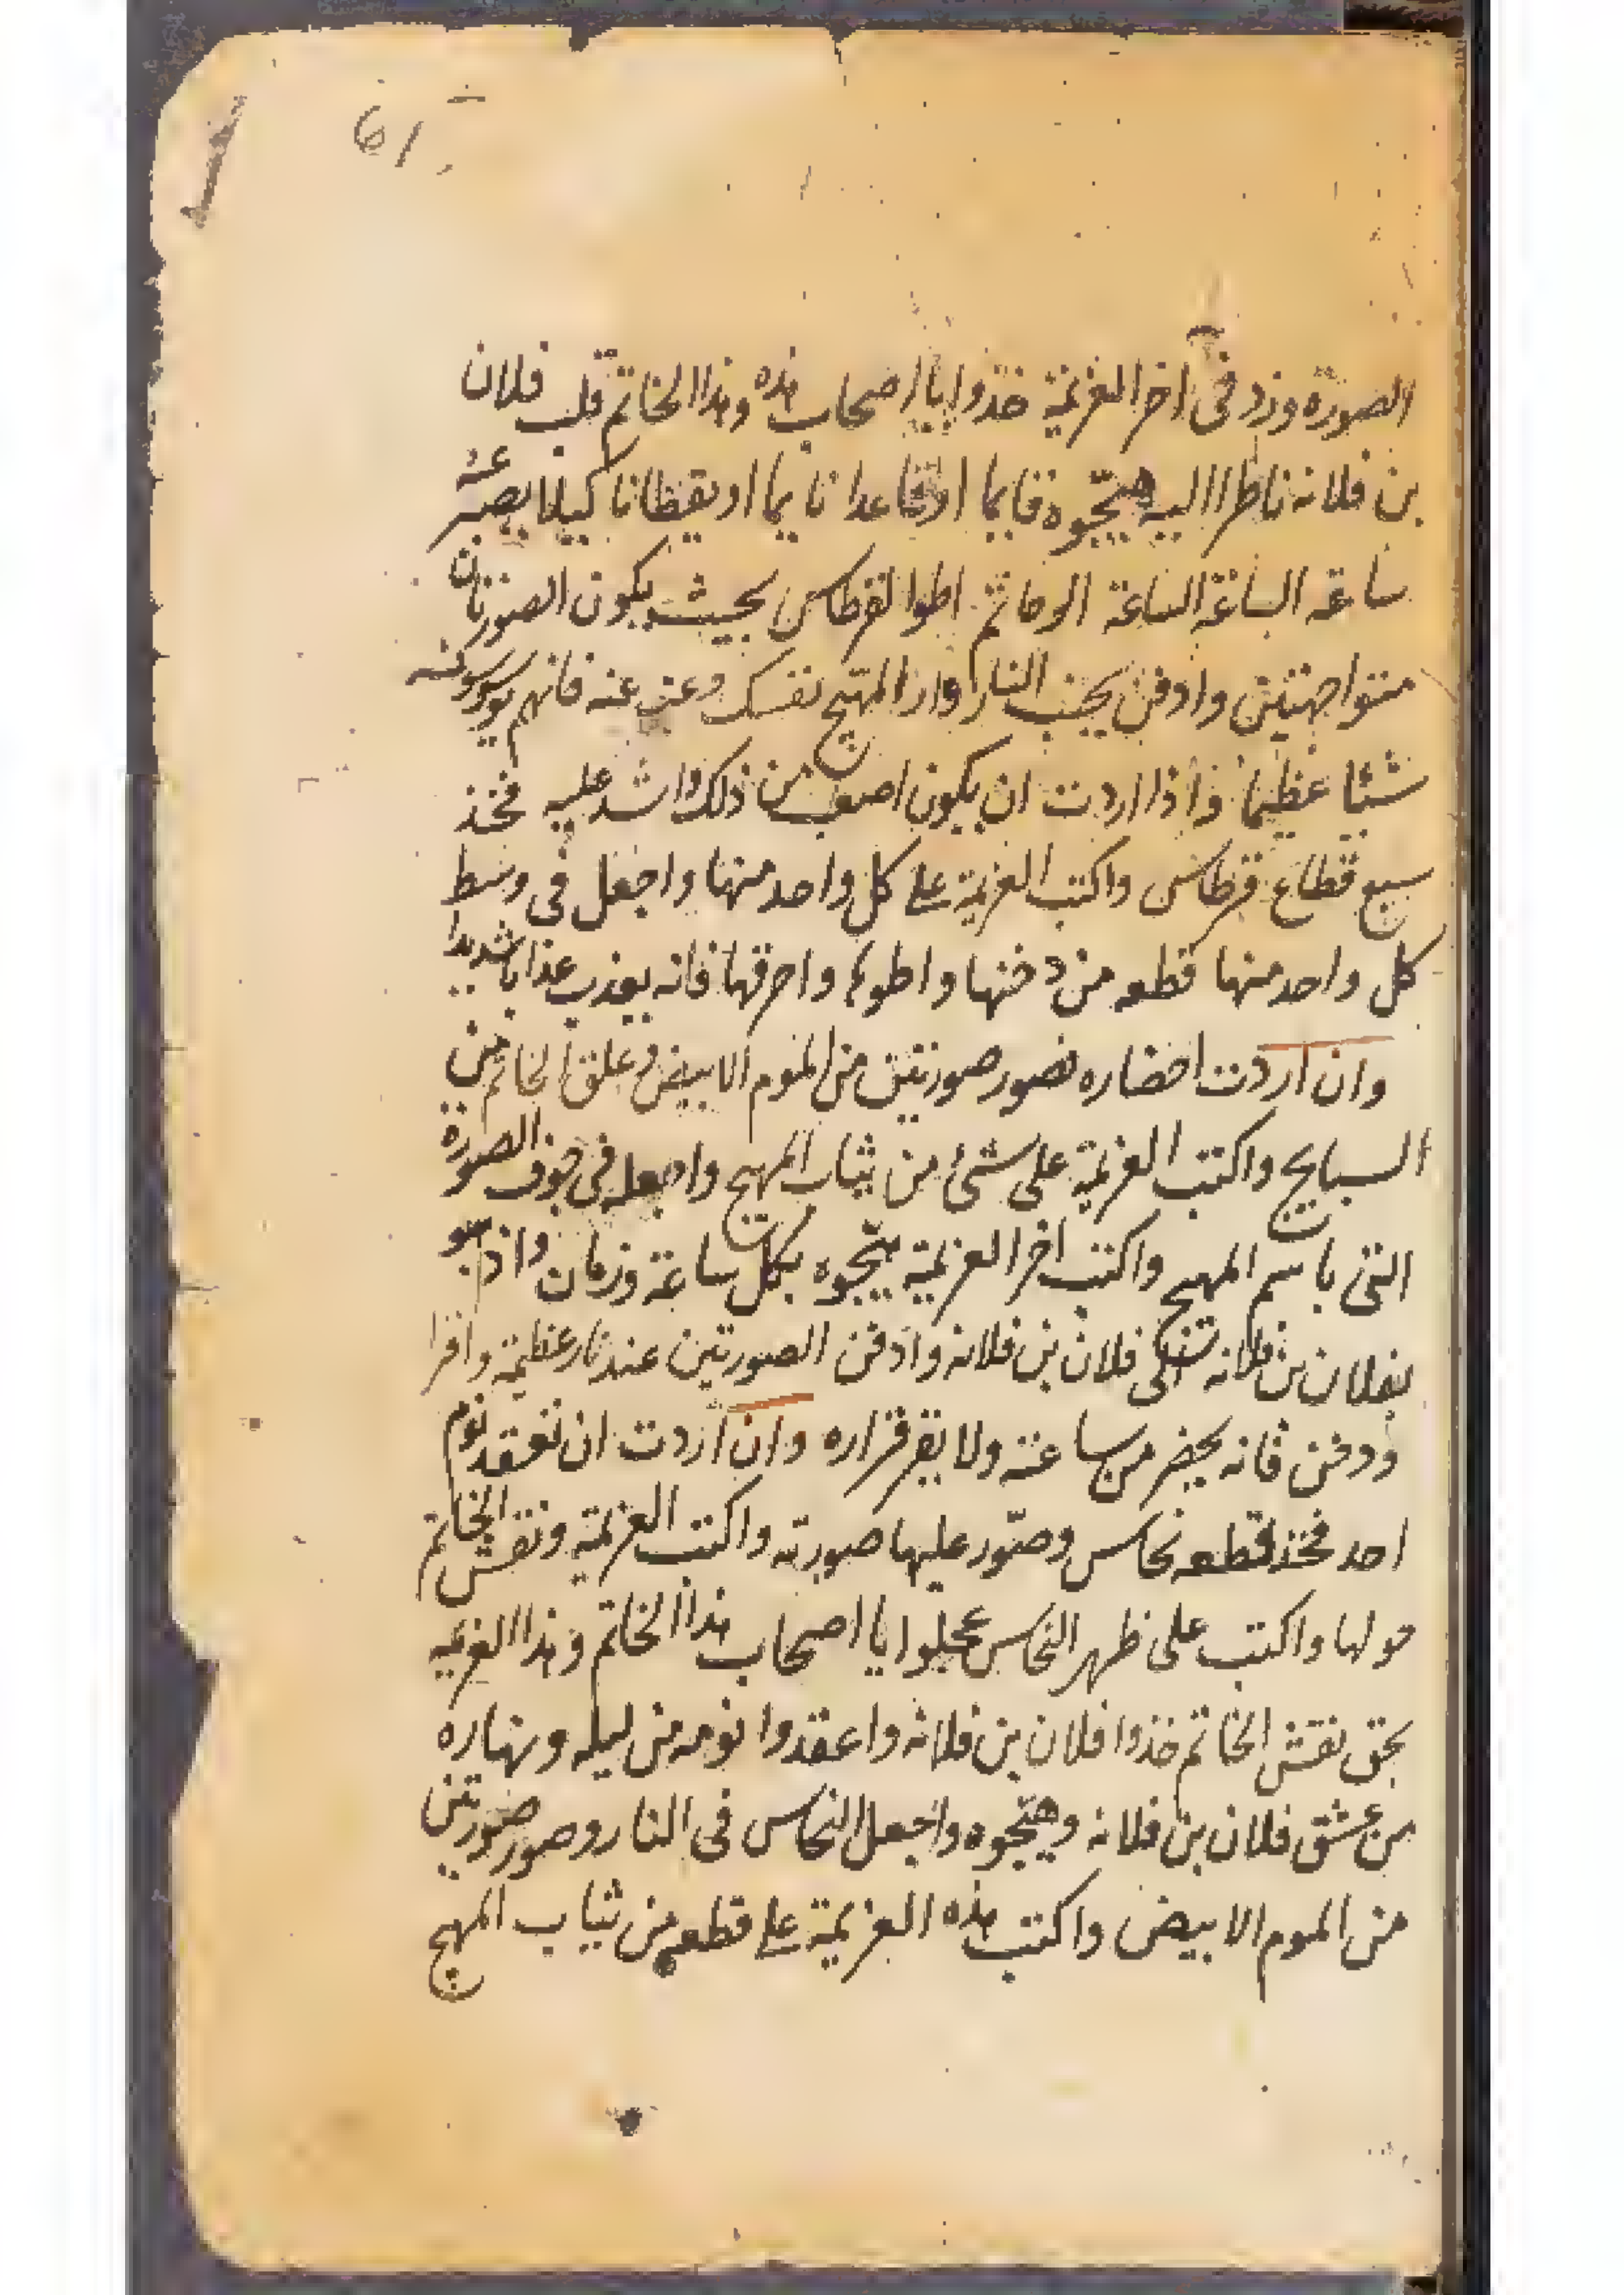 61
الصورة وزد فى اخر العزيمة خذوا يا اصحاب هذه وهذا الخاتم قلب فلان
بن فلانه ناظرا اليه هيّجوه قايما او قاعدا نايما او يقظانا كيلا يصبر عنه
ساعة الساعة الساعة الوحا ثم اطوا القرطاس بحيث يكون الصورتان
متواجهتين وادفن بجنب النار المهيج نفسك وغب عنه فانهم
شئا عظيما واذا اردت ان يكون اصعب من ذلك واشد عليه فخذ
سبع قطاع قرطاس واكتب العزيمة على كل واحد منها واجعل فى وسط
كل واحد منها قطعه من دخنها واطوها واحرقها فانه يعذب عذابا شديدا
وان اردت احضاره فصور صورتين من الموم الابيض وعلق الخاتم من
واكتب العزيمة على شئ من ثياب المهيج واجعله فى جوف الصورة
التى باسم المهيج واكتب اخر العزيمة هيّجوه بكل ساعة وزمان
بفلان بن فلانه فلان بن فلانه وادفن الصورتين عند نار عظيمة واقرا
ودخن فانه يحضر من ساعته ولا يقر قراره وان اردت ان تعقد نوم
احد فخذ قطعه نحاس وصوّر عليها صورته واكتب العزيمة ونقش الخاتم
حولها واكتب على ظهر النحاس عجلوا يا اصحاب هذا الخاتم وهذا العزيمه
بحق نقش الخاتم خذوا فلان بن فلانه واعقدوا نومه من ليله ونهاره
من عشق فلان بن فلانه وهيّجوه واجعل النحاس فى النار وصور صورتين
من الموم الابيض واكتب هذه العزيمة على قطعه من ثياب المهيج